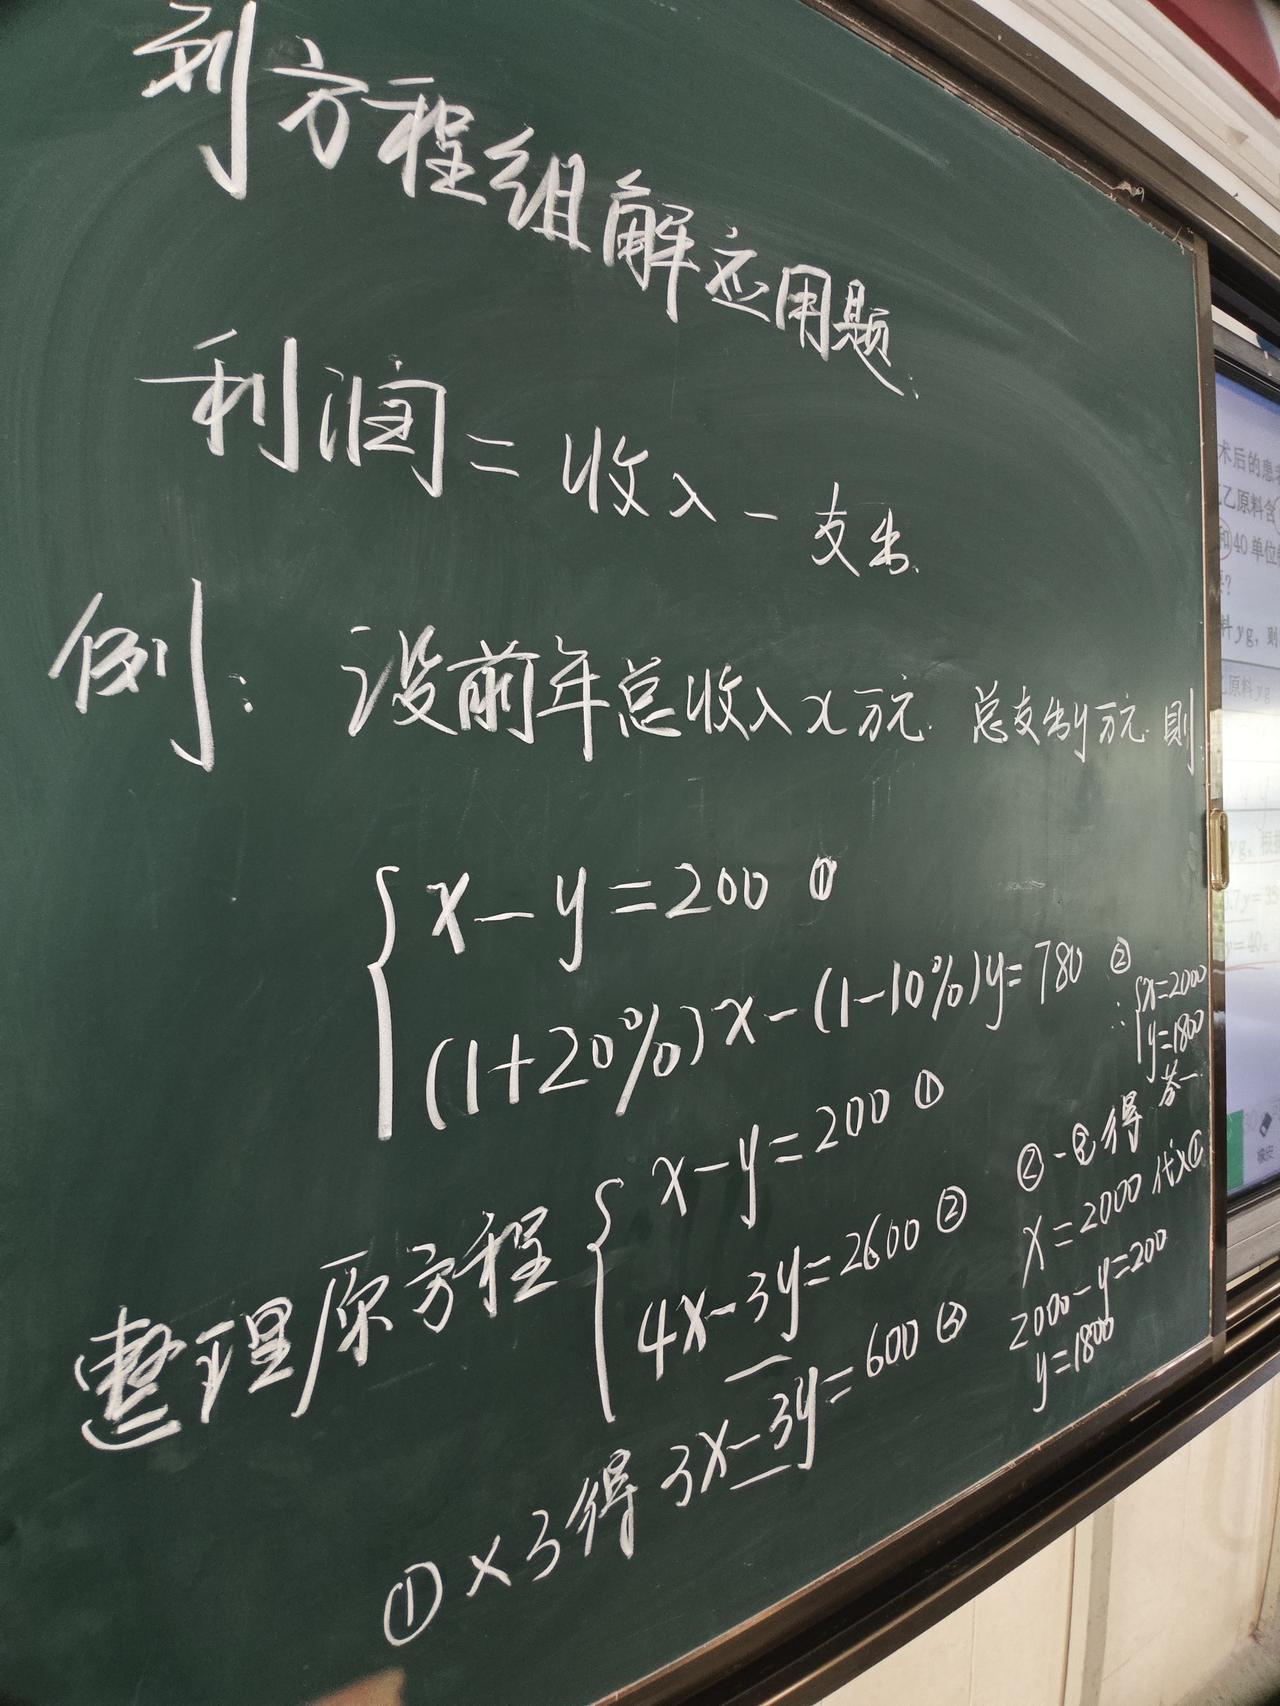 列方程组解应用题
利润=收入-支出
例: 设前年总收入x万元. 总支出y万元. 则
x-y=200 ①
(1+20%)x-(1-10%)y=780 ②
∴ x=2000
y=1800
答一.
整理原方程
x-y=200 ①
4x-3y=2600 ②
①×3得 3x-3y=600 ③
②-③得
x=2000 代入①
2000-y=200
y=1800
术后的患
乙原料含
和40单位
料 yg, 则
乙原料 yg
y=40